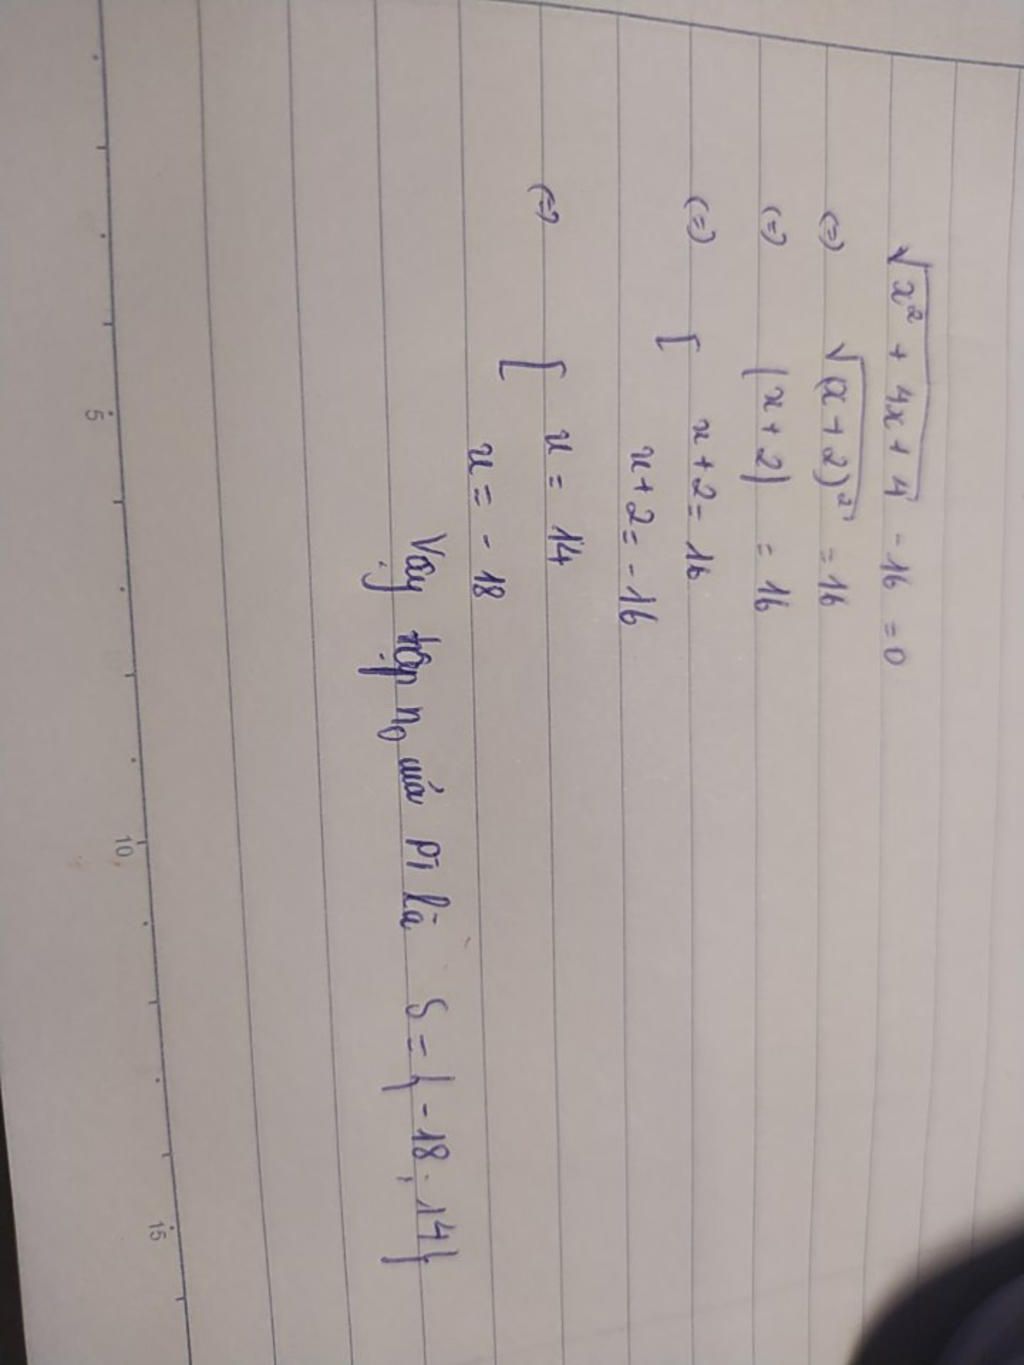 √x² + 4x + 4 - 16 = 0
(=) √(x + 2)² = 16
(=) |x + 2| = 16
(=) [ x + 2 = 16
x + 2 = -16
(=) [ x = 14
x = -18
Vậy tập n₀ của pt là S = { -18 ; 14 }
5 10 15